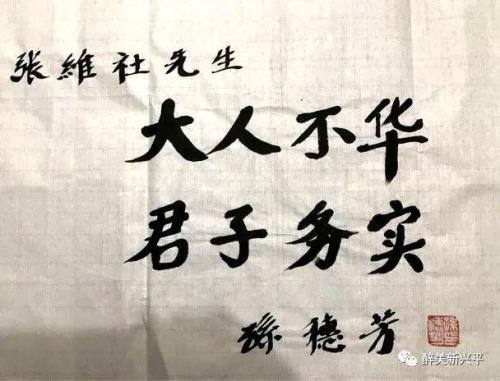 张維社先生
大人不华
君子务实
孫穗芳
醉美新兴平